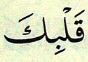 قَلْبِكَ